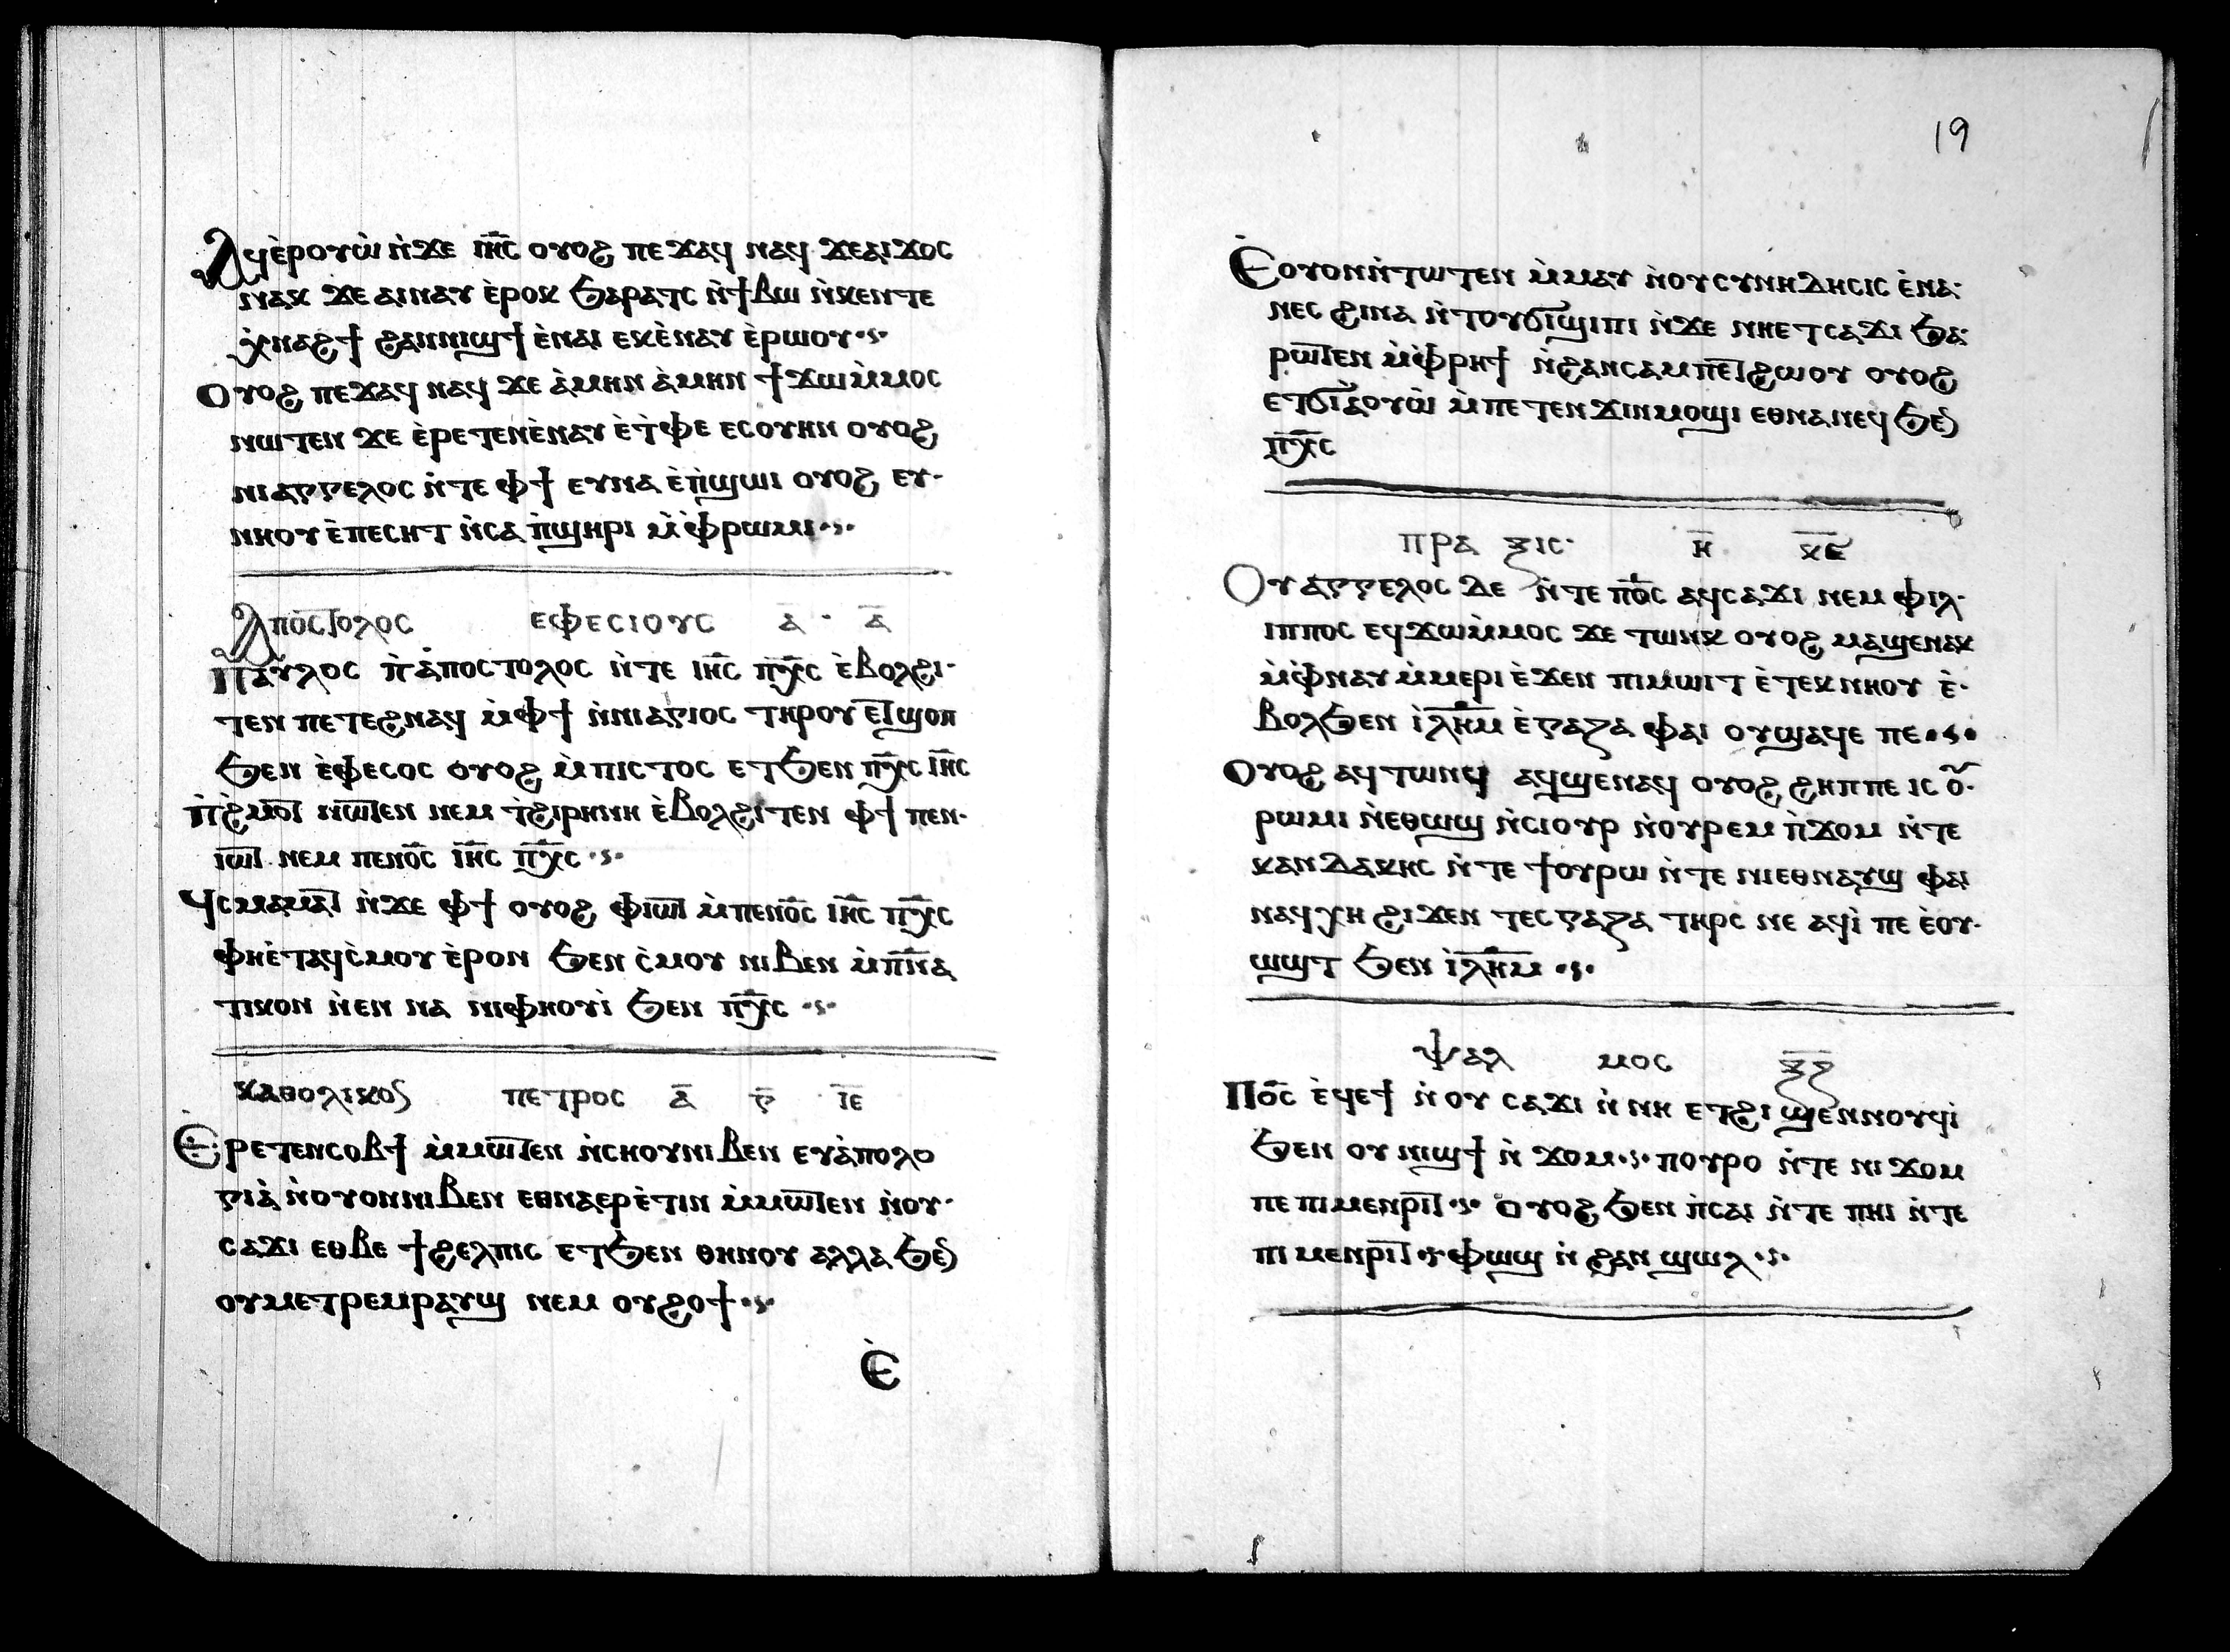 Ⲁϥⲉ̀ⲣⲟⲩⲱ̀ ⲛ̀ϫⲉ ⲓⲏ̅ⲥ̅ ⲟⲩⲟϩ ⲡⲉϫⲁϥ ⲛⲁϥ ϫⲉⲁⲓϫⲟⲥ
ⲛⲁⲕ ϫⲉ ⲁⲓⲛⲁⲩ ⲉ̀ⲣⲟⲕ ϧⲁⲣⲁⲧⲥ ⲛ̀ϯⲃⲱ ⲛ̀ⲕⲉⲛⲧⲉ
ⲭ̀ⲛⲁϩϯ ϩⲁⲛⲛⲓϣϯ ⲉ̀ⲛⲁⲓ ⲉⲕⲉ̀ⲛⲁⲩ ⲉ̀ⲣⲱⲟⲩ·ⲋ·
Ⲟⲩⲟϩ ⲡⲉϫⲁϥ ⲛⲁϥ ϫⲉ ⲁ̀ⲙⲏⲛ ⲁ̀ⲙⲏⲛ ϯϫⲱⲙ̀ⲙⲟⲥ
ⲛⲱⲧⲉⲛ ϫⲉ ⲉ̀ⲣⲉⲧⲉⲛⲉ̀ⲛⲁⲩ ⲉ̀ⲧ̀ⲫⲉ ⲉⲥⲟⲩⲏⲛ ⲟⲩⲟϩ
ⲛⲓⲁⲅⲅⲉⲗⲟⲥ ⲛ̀ⲧⲉ ⲫϯ ⲉⲩⲛⲁ ⲉ̀ⲡ̀ϣⲱⲓ ⲟⲩⲟϩ ⲉⲩ·
ⲛⲏⲟⲩ ⲉ̀ⲡⲉⲥⲏⲧ ⲛ̀ⲥⲁ ⲡ̀ϣⲏⲣⲓ ⲙ̀ⲫ̀ⲣⲱⲙⲓ·ⲋ·
Ⲁⲡⲟⲥⲧⲟⲗⲟⲥ ⲉⲫⲉⲥⲓⲟⲩⲥ ⲁ̅ · ⲁ̅
Ⲡⲁⲩⲗⲟⲥ ⲡ̀ⲁ̀ⲡⲟⲥⲧⲟⲗⲟⲥ ⲛ̀ⲧⲉ ⲓⲏ̅ⲥ̅ ⲡⲭ̅ⲥ̅ ⲉ̀ⲃⲟⲗϩⲓ·
ⲧⲉⲛ ⲡⲉⲧⲉϩⲛⲁϥ ⲙ̀ⲫϯ ⲛ̀ⲛⲓⲁⲅⲓⲟⲥ ⲧⲏⲣⲟⲩ ⲉⲧϣⲟⲡ
ϧⲉⲛ ⲉ̀ⲫⲉⲥⲟⲥ ⲟⲩⲟϩ ⲙ̀ⲡⲓⲥⲧⲟⲥ ⲉⲧϧⲉⲛ ⲡⲭ̅ⲥ̅ ⲓⲏ̅ⲥ̅
Ⲡ̀ϩ̀ⲙⲟⲧ ⲛⲱⲧⲉⲛ ⲛⲉⲙ ⲧ̀ϩⲓⲣⲏⲛⲏ ⲉ̀ⲃⲟⲗϩⲓⲧⲉⲛ ⲫϯ ⲡⲉⲛ·
ⲓⲱⲧ ⲛⲉⲙ ⲡⲉⲛⲟ̅ⲥ̅ ⲓⲏ̅ⲥ̅ ⲡⲭ̅ⲥ̅ ·ⲋ·
Ϥⲥⲙⲁⲙⲁⲧ ⲛ̀ϫⲉ ⲫϯ ⲟⲩⲟϩ ⲫⲓⲱⲧ ⲙ̀ⲡⲉⲛⲟ̅ⲥ̅ ⲓⲏ̅ⲥ̅ ⲡⲭ̅ⲥ̅
ⲫⲏⲉ̀ⲧⲁϥⲥ̀ⲙⲟⲩ ⲉ̀ⲣⲟⲛ ϧⲉⲛ ⲥ̀ⲙⲟⲩ ⲛⲓⲃⲉⲛ ⲙ̀ⲡ̅ⲛ̅ⲁ
ⲧⲓⲕⲟⲛ ⲛ̀ⲉⲛ ⲛⲁ ⲛⲓⲫⲏⲟⲩⲓ̀ ϧⲉⲛ ⲡⲭ̅ⲥ̅ ·ⲋ·
ⲕⲁⲑⲟⲗⲓⲕⲟⲥ ⲡⲉⲧⲣⲟⲥ ⲁ̅ ⲅ̅ ⲓ̅ⲉ̅
Ⲉ̀ⲣⲉⲧⲉⲛⲥⲟⲃϯ ⲙ̀ⲙⲱⲧⲉⲛ ⲛ̀ⲥⲏⲟⲩⲛⲓⲃⲉⲛ ⲉⲩⲁ̀ⲡⲟⲗⲟ
ⲅⲓⲁ̀ ⲛ̀ⲟⲩⲟⲛⲛⲓⲃⲉⲛ ⲉⲑⲛⲁⲉⲣⲉ̀ⲧⲓⲛ ⲙ̀ⲙⲱⲧⲉⲛ ⲛ̀ⲟⲩ·
ⲥⲁϫⲓ ⲉⲑⲃⲉ ϯϩⲉⲗⲡⲓⲥ ⲉⲧϧⲉⲛ ⲑⲏⲛⲟⲩ ⲁⲗⲗⲁ ϧⲉⲛ
ⲟⲩⲙⲉⲧⲣⲉⲙⲣⲁⲩϣ ⲛⲉⲙ ⲟⲩϩⲟϯ·ⲋ·
Ⲉ̀
19
Ⲉ̀ⲟⲩⲟⲛⲛ̀ⲧⲱⲧⲉⲛ ⲙ̀ⲙⲁⲩ ⲛ̀ⲟⲩⲥⲩⲛⲏⲇⲏⲥⲓⲥ ⲉ̀ⲛⲁ·
ⲛⲉⲥ ϩⲓⲛⲁ ⲛ̀ⲧⲟⲩϭⲓϣⲓⲡⲓ ⲛ̀ϫⲉ ⲛⲏⲉⲧⲥⲁϫⲓ ϧⲁ·
ⲣⲱⲧⲉⲛ ⲙ̀ⲫ̀ⲣⲏϯ ⲛ̀ϩⲁⲛⲥⲁⲙⲡⲉⲧϩⲱⲟⲩ ⲟⲩⲟϩ
ⲉⲧϭⲓⲗ̀ⲟⲩⲱ̀ ⲙ̀ⲡⲉⲧⲉⲛϫⲓⲛⲙⲟϣⲓ ⲉⲑⲛⲁⲛⲉϥ ϧⲉⲛ
ⲡⲭ̅ⲥ̅
ⲡⲣⲁ ⲝⲓⲥ· ⲏ̅· ⲕ̅ⲋ̅
Ⲟⲩⲁⲅⲅⲉⲗⲟⲥ ⲇⲉ ⲛ̀ⲧⲉ ⲡⲟ̅ⲥ̅ ⲁϥⲥⲁϫⲓ ⲛⲉⲙ ⲫⲓⲗ·
ⲓⲡⲡⲟⲥ ⲉϥϫⲱⲙ̀ⲙⲟⲥ ϫⲉ ⲧⲱⲛⲕ ⲟⲩⲟϩ ⲙⲁϣⲉⲛⲁⲕ
ⲙ̀ⲫ̀ⲛⲁⲩ ⲙ̀ⲙⲉⲣⲓ ⲉ̀ϫⲉⲛ ⲡⲓⲙⲱⲓⲧ ⲉ̀ⲧⲉⲕⲛⲏⲟⲩ ⲉ̀·
ⲃⲟⲗϧⲉⲛ ⲓ̀ⲗ̅ⲏ̅ⲙ̅ ⲉ̀ⲅⲁⲍⲁ ⲫⲁⲓ ⲟⲩϣⲁϥⲉ ⲡⲉ·ⲋ·
Ⲟⲩⲟϩ ⲁϥⲧⲱⲛϥ ⲁϥϣⲉⲛⲁϥ ⲟⲩⲟϩ ϩⲏⲡⲡⲉ ⲓⲥ ⲟⲩ·
ⲣⲱⲙⲓ ⲛ̀ⲉⲑⲱϣ ⲛ̀ⲥⲓⲟⲩⲣ ⲛ̀ⲟⲩⲣⲉⲙ ⲡ̀ϫⲟⲙ ⲛ̀ⲧⲉ
ⲕⲁⲛⲇⲁⲕⲏⲥ ⲛ̀ⲧⲉ ϯⲟⲩⲣⲱ ⲛ̀ⲧⲉ ⲛⲓⲉⲑⲛⲁⲩϣ ⲫⲁⲓ
ⲛⲁϥⲭⲏ ϩⲓϫⲉⲛ ⲧⲉⲥⲅⲁⲍⲁ ⲧⲏⲣⲥ ⲛⲉ ⲁϥⲓ̀ ⲡⲉ ⲉ̀ⲟⲩ·
ⲱϣⲧ ϧⲉⲛ ⲓ̀ⲗ̅ⲏ̅ⲙ̅ ·ⲋ·
ⲯⲁⲗ ⲙⲟⲥ ⲝ̅ⲍ̅
Ⲡⲟ̅ⲥ̅ ⲉ̀ϥⲉϯ ⲛ̀ⲟⲩ ⲥⲁϫⲓ ⲛ̀ⲛⲏ ⲉⲧϩⲓ ϣⲉⲛⲛⲟⲩϥⲓ̀
ϧⲉⲛ ⲟⲩ ⲛⲓϣϯ ⲛ̀ ϫⲟⲙ·ⲋ· ⲡⲟⲩⲣⲟ ⲛ̀ⲧⲉ ⲛⲓ ϫⲟⲙ
ⲡⲉ ⲡⲓⲙⲉⲛⲣⲓⲧ·ⲋ· ⲟⲩⲟϩ ϧⲉⲛ ⲡ̀ⲥⲁⲓ ⲛ̀ⲧⲉ ⲡⲏⲓ ⲛ̀ⲧⲉ
ⲡⲓ ⲙⲉⲛⲣⲓⲧ·ⲋ· ⲫⲱϣ ⲛ̀ ϩⲁⲛ ϣⲱⲗ·ⲋ·